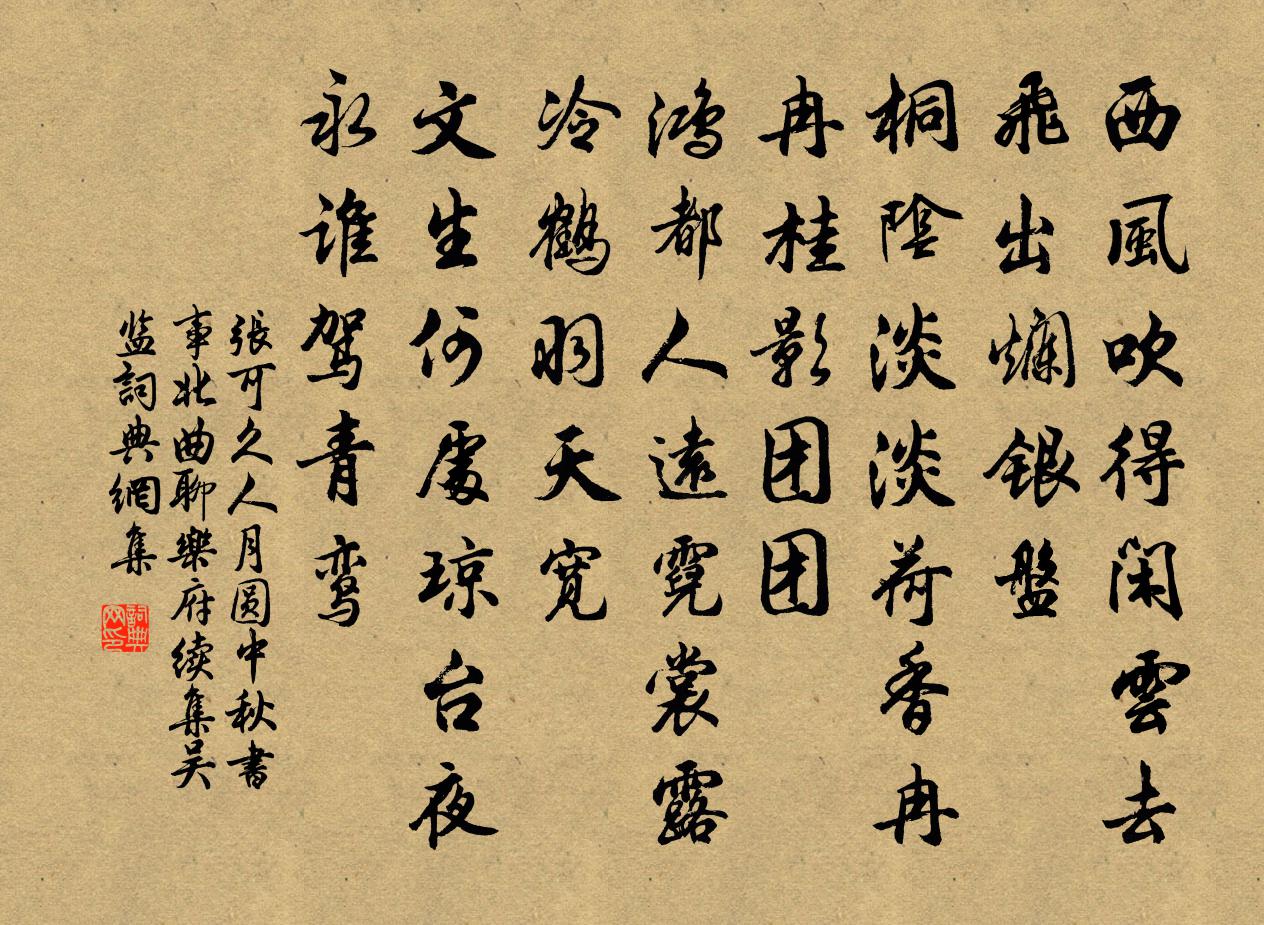 西風吹得闲雲去
飛出爛銀盤
桐陰淡淡荷香冉
冉桂影团团
鴻都人遠霓裳露
冷鶴羽天宽
文生何處琼台夜
永谁驾青鸾
張可久人月圆中秋書
事北曲聊樂府续集吴
盐詞典網集
詞典网印